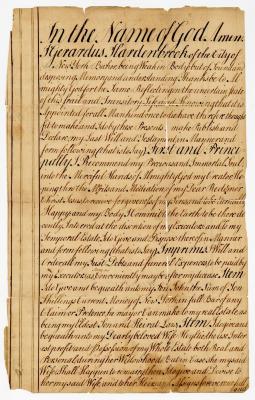 In the Name of God Amen.
I Gerardus Hardenbrook of the City of
New York Baker being Weak in Body but of Sound and
disposing Memory and understanding Thanks be to Al=
mighty God for the Same Reflecting on the uncertain State
of this frail and Transitory Life and Knowing that it is
Appointed for all Mankind once to die have therefore thought
fit to make and do by these Presents make Publish and
Declare my Last Will and Testament in Manner and
form following that is to Say First and Princi=
pally I Recommend my Precious and Immortal Soul
into the Merciful Hands of Almighty God my Creator Ho=
ping thro' the Merits and Mediation of my Dear Redeemer
Christ Jesus to receive forgiveness of my Sins and
Happy and my Body I Commit to the Earth to be there de=
cently Interred at the discretion of my Executors and to my
Temporal Estate I do Give and Dispose thereof in Manner
and form following that is to say Imprimis I Will and
Order all my Just Debts and funeral Expences to be paid by
my Executors as Conveniently may be after my decease Item
I do Give and bequeath unto my Son John the Sum of Ten
Shillings Current Money of New York in full Bar of any
Claim or Pretence he may or Can make to my real Estate as
being my Eldest Son and Heir at Law, Item I do give and
bequeath unto my Dearly beloved Wife the Use Inte=
rest profit and Possession of my Whole Estate both Real and
Personal during her Widowhood But in Case She my said
Wife Shall Happen to remarry then I do give and Devise to
her my said Wife and to her Heirs and Assigns for ever one full